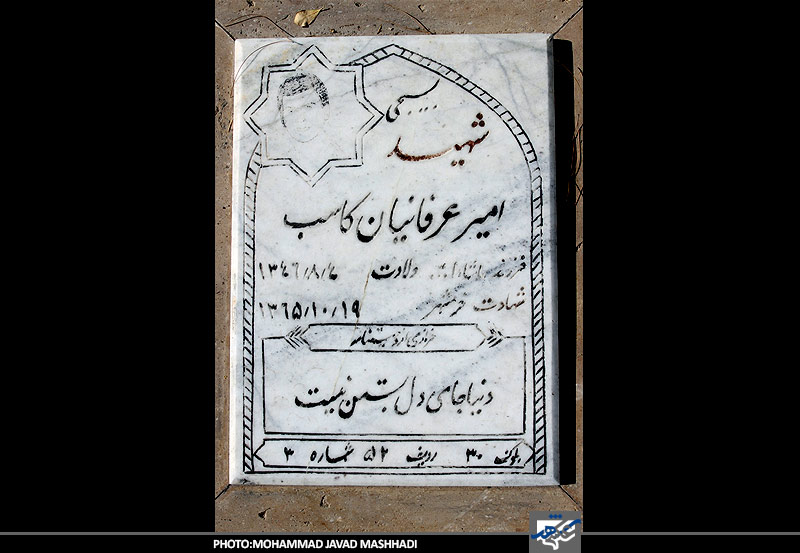 بسیجی
شهید
امیر عرفانیان کاسب
فرزند ولادت ۱۳۴۶/۸/۴
شهادت خرمشهر ۱۳۶۵/۱۰/۱۹
فرازی از وصیتنامه
دنیا جای دل بستن نیست
بلوک ۳۰ ردیف ۵۲ شماره ۳
PHOTO:MOHAMMAD JAVAD MASHHADI